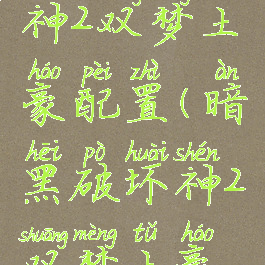 神2双梦土
háo pèi zhì àn
豪配置(暗
hēi pò huài shén
黑破坏神2
shuāng mèng tǔ háo
双梦土豪